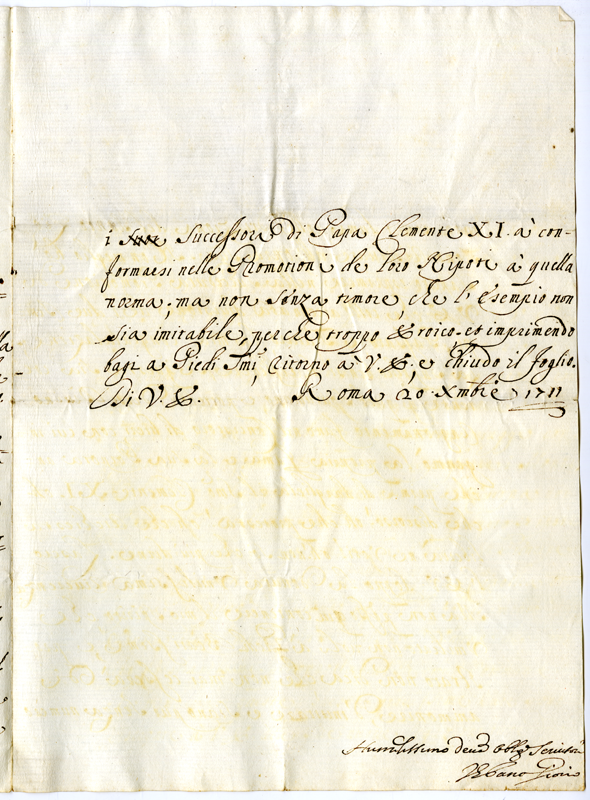 i Successori di Papa Clemente XI. à con-
formarsi nelle Promotioni de loro Nipoti à quella
norma, ma non senza timore, che l'esempio non
sia imitabile, perche troppo Eroico. et imprimendo
bagi a Piedi Smi, ritorno à V. E. e chiudo il foglio.
Di V. E. Roma 20 Xmbre 1711
Humilissimo deuo obbl Seruitor
Urbano Giorii